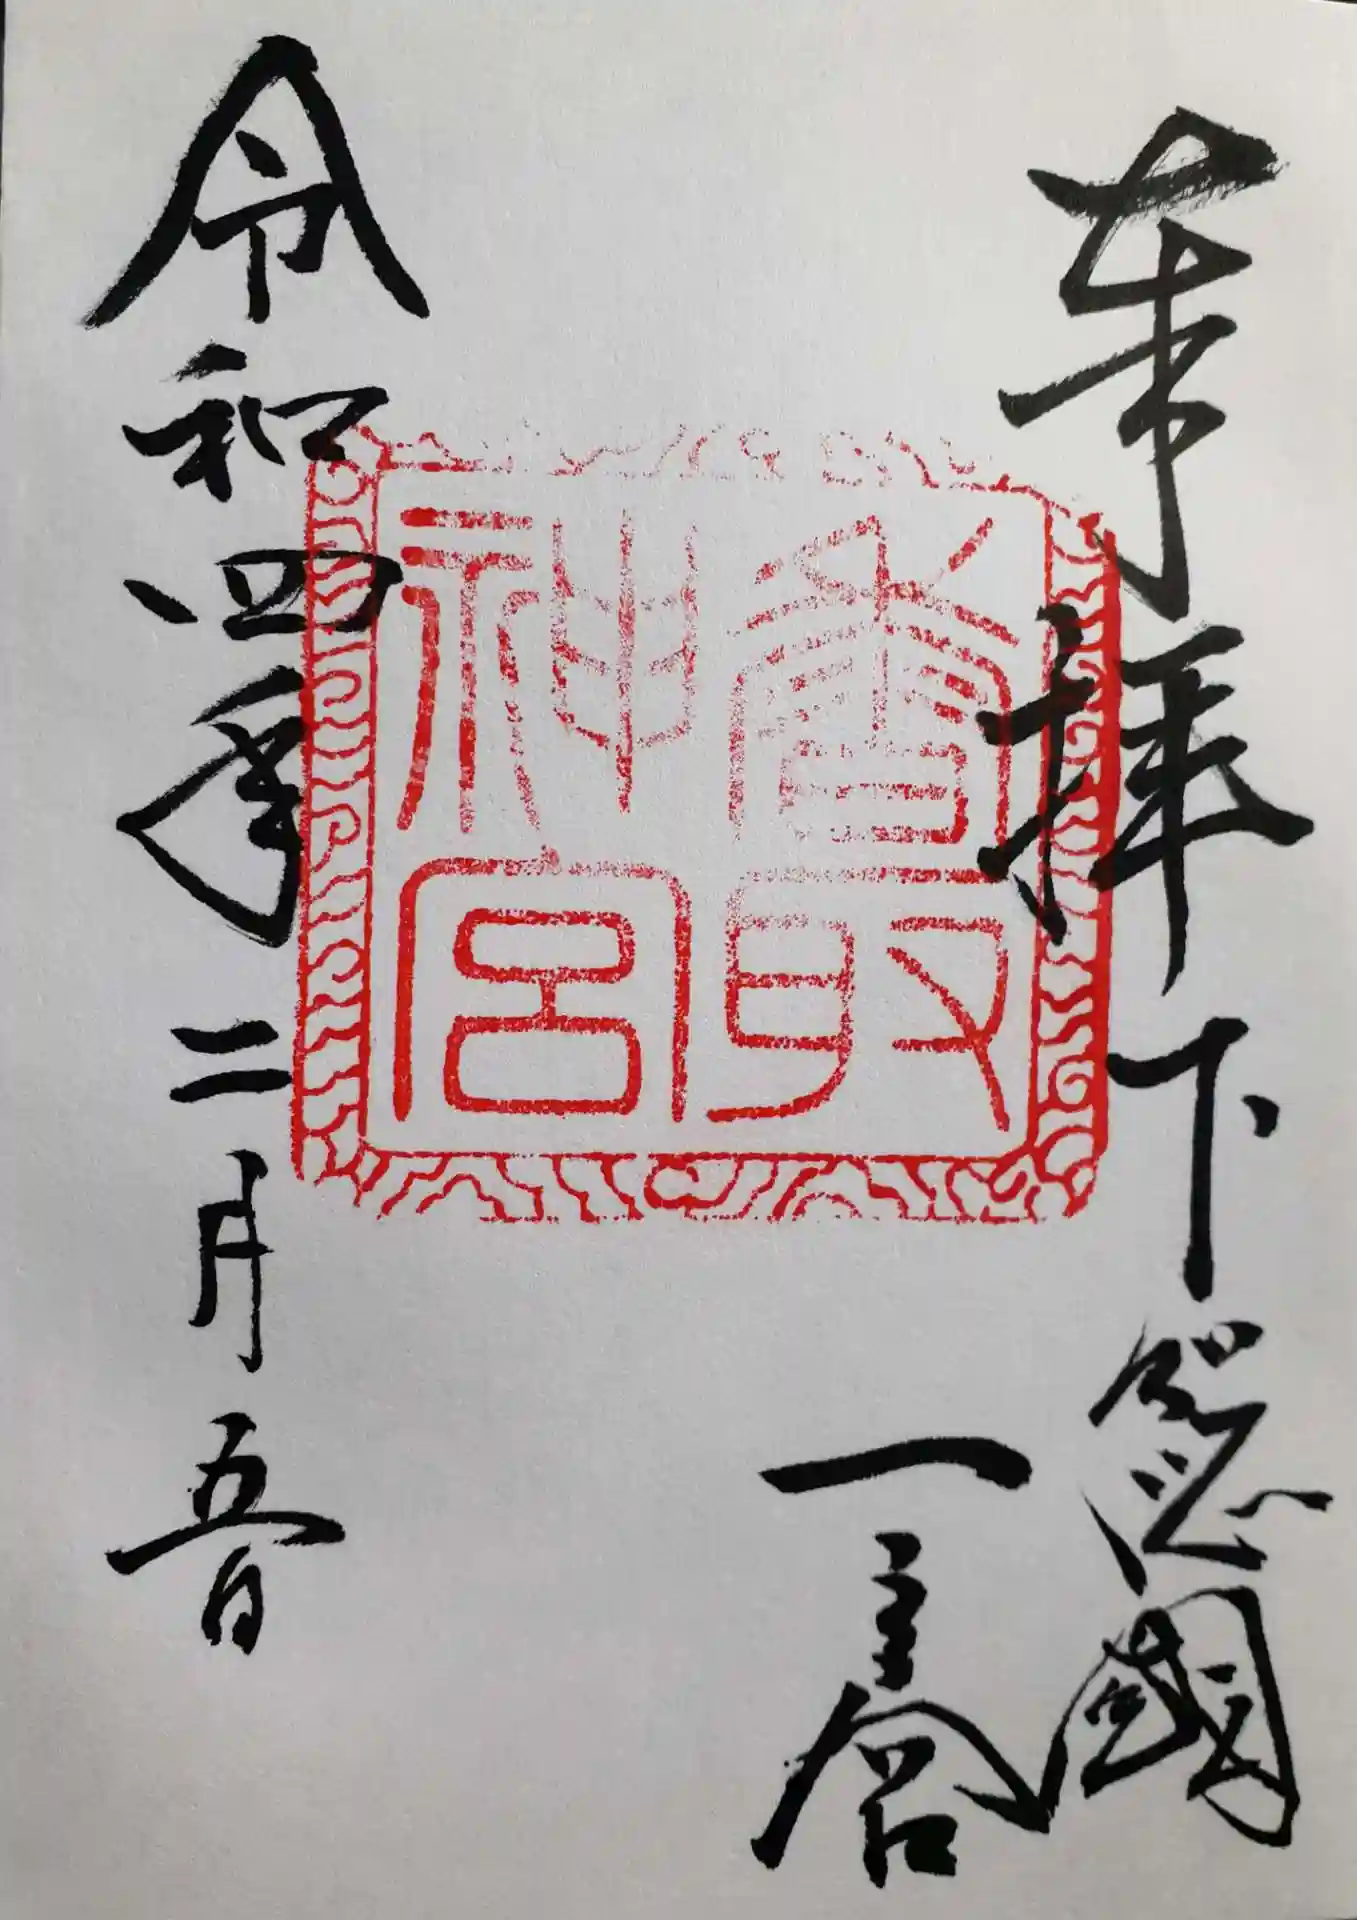 奉拝下総國
一之宮
香取
神宮
令和四年二月五日